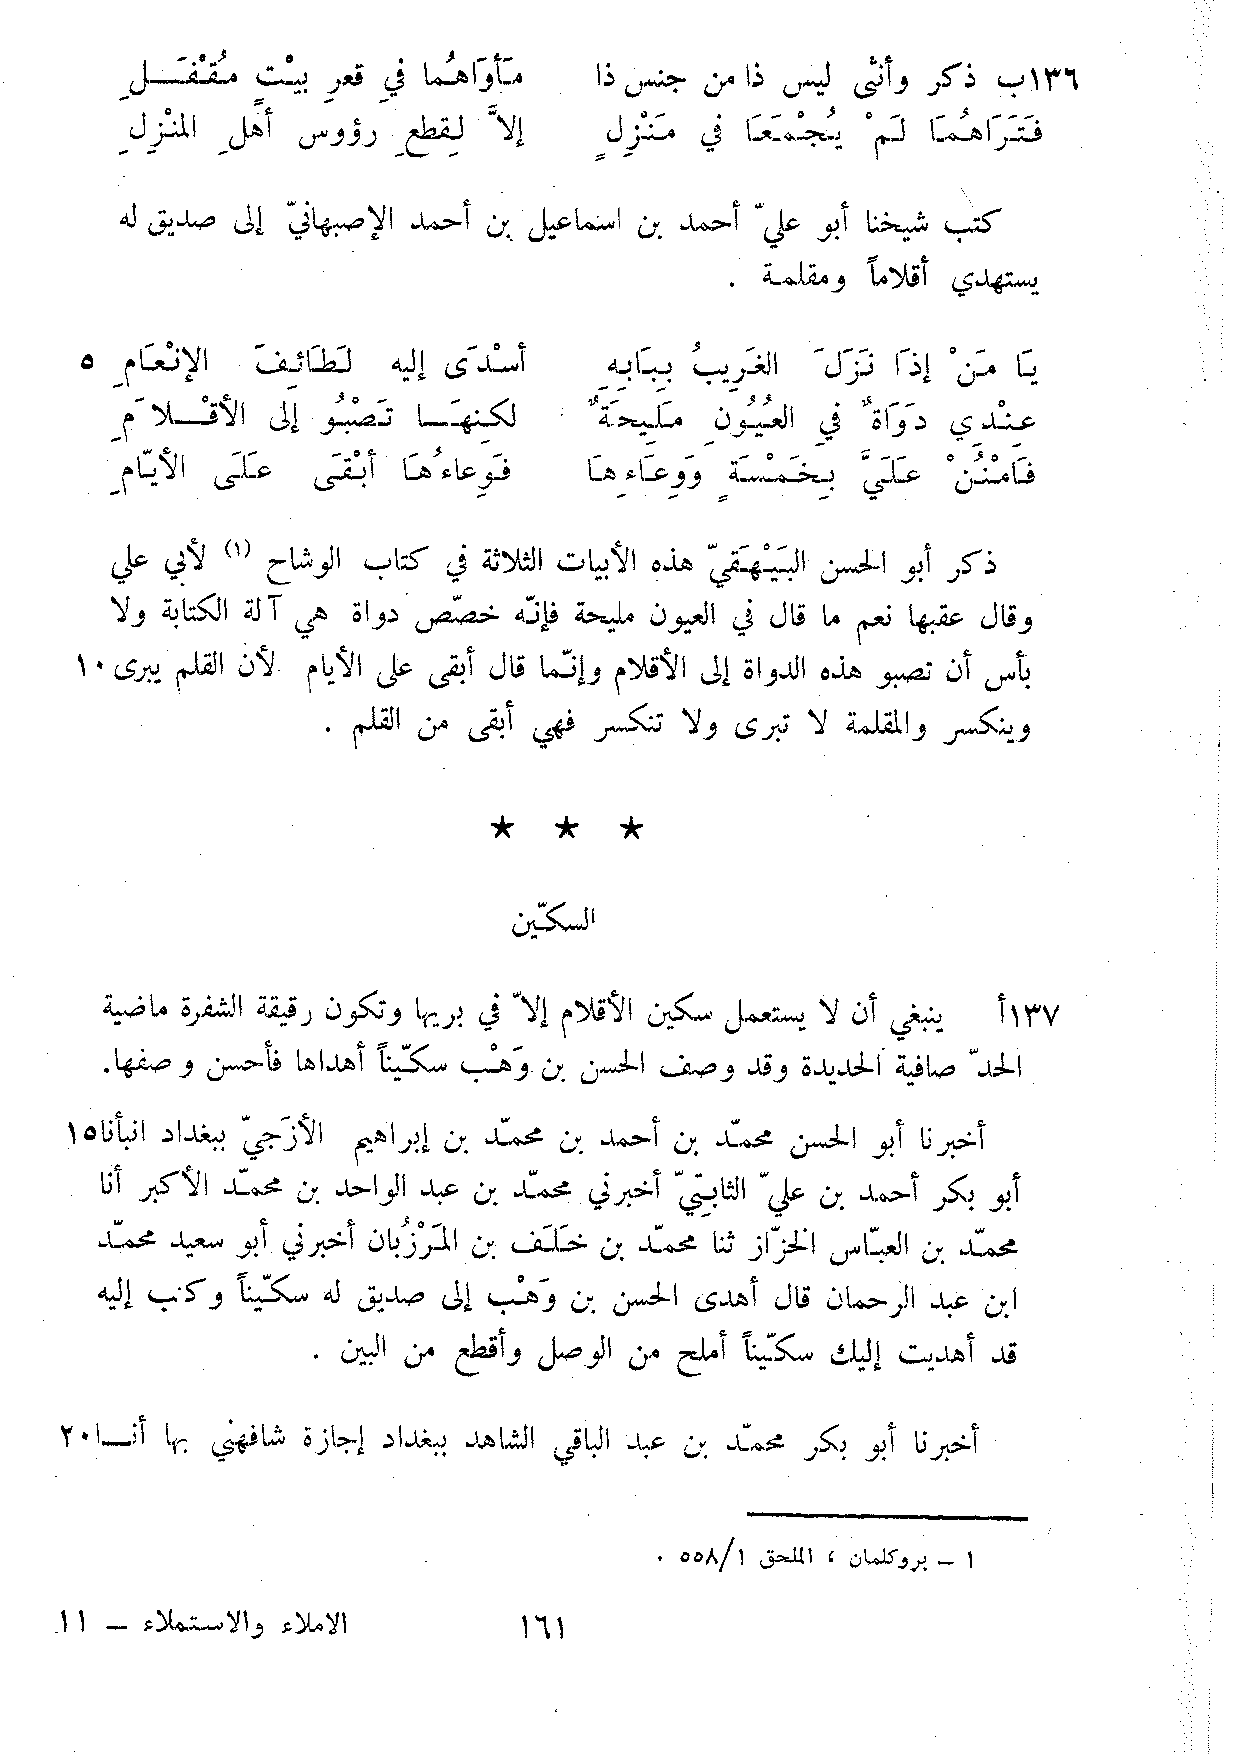 ١٣٦ب ذكر وأنثى ليس ذا من جنس ذا مَأْوَاهُما فِي قعرِ بيْتٍ مُقْفَلِ
فَتَرَاهُمَا لَمْ يُجْمَعَا في مَنْزِلٍ إلاَّ لِقطعِ رؤوس أهْلِ المنْزِلِ
كتب شيخنا أبو عليّ أحمد بن اسماعيل بن أحمد الإصبهانيّ إلى صديق له
يستهدي أقلاماً ومقلمة .
يَا مَنْ إذَا نَزَلَ الغَرِيبُ بِبَابِهِ أسْدَى إليه لَطَائِفَ الإنْعَامِ ٥
عِنْدِي دَوَاةٌ فِي العُيُونِ مَلِيحَةٌ لكِنهَا تَصْبُو إلى الأقْلاَمِ
فَامْنُنْ عَلَيَّ بِخَمْسَةٍ وَوِعَاءِها فَوِعاءُهَا أبْقَى عَلَى الأيّامِ
ذكر أبو الحسن البَيْهَقيّ هذه الأبيات الثلاثة في كتاب الوشاح (١) لأبي علي
وقال عقبها نعم ما قال في العيون مليحة فإنّه خصّص دواة هي آلة الكتابة ولا
بأس أن تصبو هذه الدواة إلى الأقلام وإنّما قال أبقى على الأيام لأن القلم يبرى ١٠
وينكسر والمقلمة لا تبرى ولا تنكسر فهي أبقى من القلم .
★ ★ ★
السكّين
١٣٧أ ينبغي أن لا يستعمل سكين الأقلام إلاّ في بريها وتكون رقيقة الشفرة ماضية
الحدّ صافية الحديدة وقد وصف الحسن بن وَهْب سكّيناً أهداها فأحسن و صفها.
أخبرنا أبو الحسن محمّد بن أحمد بن محمّد بن إبراهيم الأزَجيّ ببغداد انبأنا ١٥
أبو بكر أحمد بن عليّ الثابِتيّ أخبرني محمّد بن عبد الواحد بن محمّد الأكبر أنا
محمّد بن العبّاس الخزّاز ثنا محمّد بن خَلَف بن المَرْزُبان أخبرني أبو سعيد محمّد
ابن عبد الرحمان قال أهدى الحسن بن وَهْب إلى صديق له سكّيناً وكتب إليه
قد أهديت إليك سكّيناً أملح من الوصل وأقطع من البين .
أخبرنا أبو بكر محمّد بن عبد الباقي الشاهد ببغداد إجازة شافهني بها أنا ٢٠
١ – بروكلمان ، الملحق ١/٥٥٨ .
١٦١ الاملاء والاستملاء – ١١